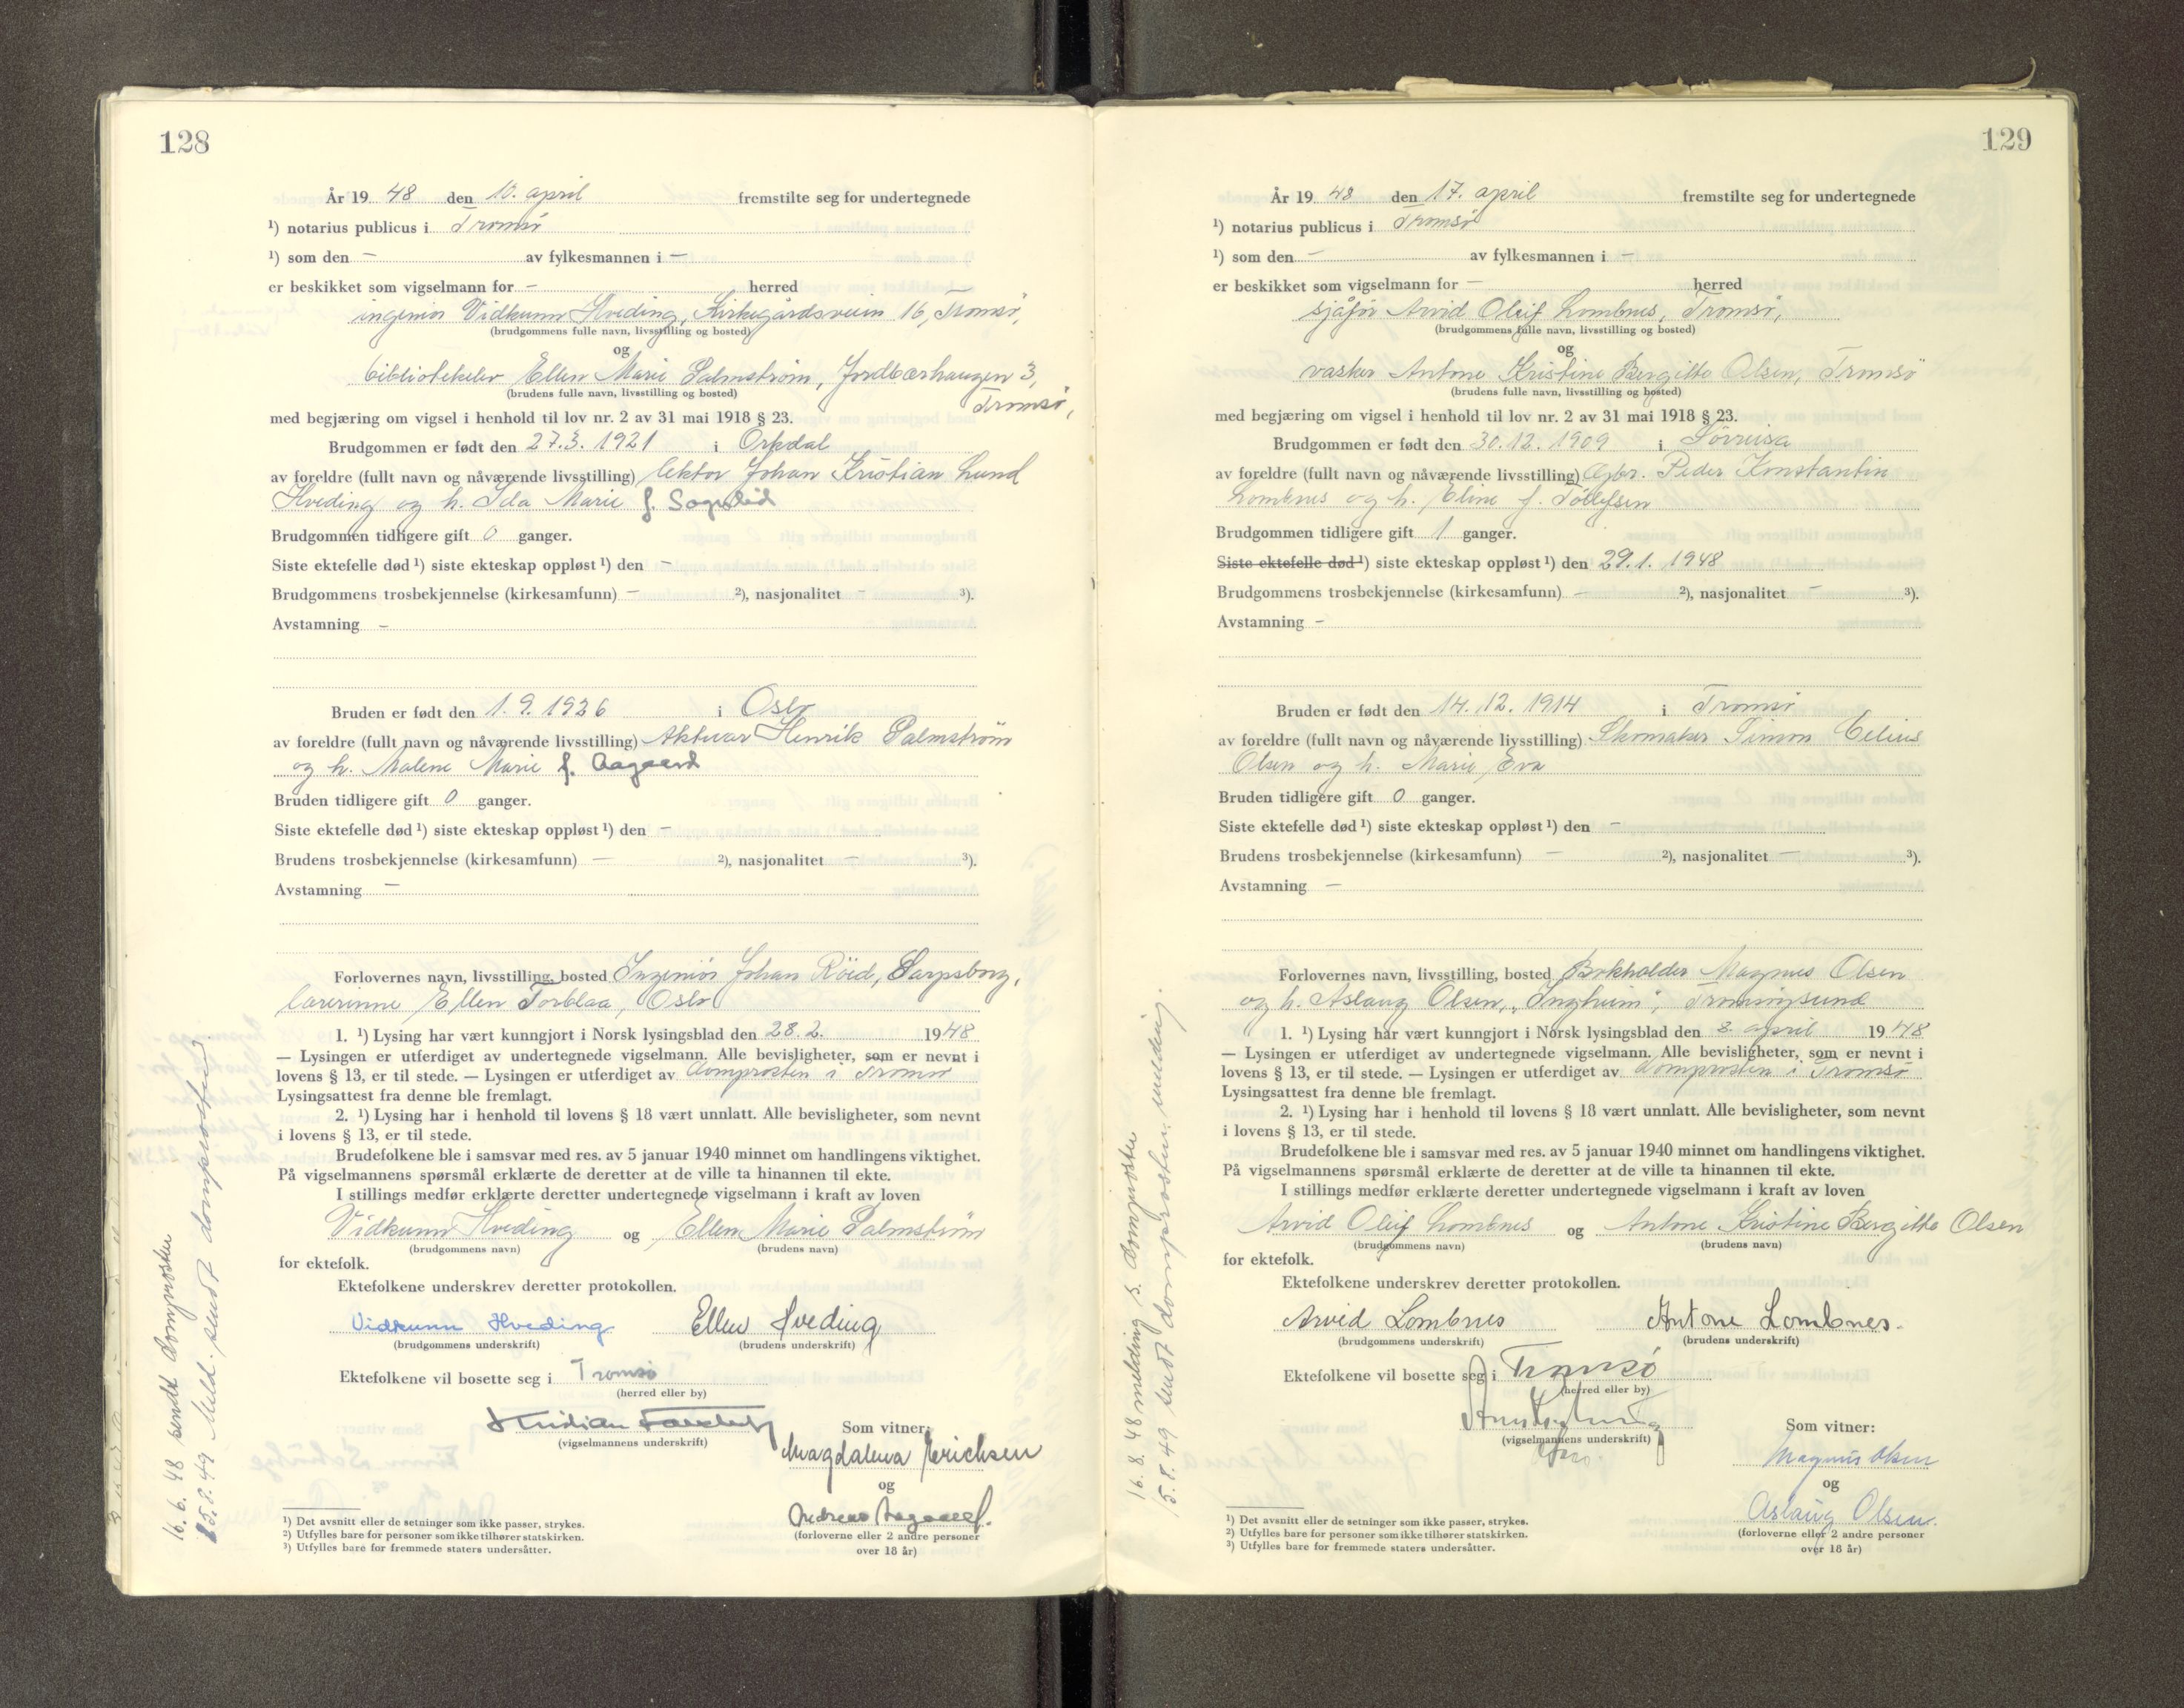 128
År 19 48 den 10. april fremstilte seg for undertegnede
¹) notarius publicus i Tromsø
¹) som den – av fylkesmannen i –
er beskikket som vigselmann for – herred
ingeniør Vidkunn Hveding, Kirkegårdsveien 16, Tromsø,
(brudgommens fulle navn, livsstilling og bosted)
og
bibliotekelev Ellen Marie Palmstrøm, Jordbærhaugen 3,
(brudens fulle navn, livsstilling og bosted)
Tromsø,
med begjæring om vigsel i henhold til lov nr. 2 av 31 mai 1918 § 23.
Brudgommen er født den 27.3. 1921 i Orkdal
av foreldre (fullt navn og nåværende livsstilling) lektor Johan Kristian Lund
Hveding og h. Ida Marie f.
Brudgommen tidligere gift 0 ganger.
Siste ektefelle død ¹) siste ekteskap oppløst ¹) den –
Brudgommens trosbekjennelse (kirkesamfunn) – ²), nasjonalitet – ³).
Avstamning –
Bruden er født den 1.9.1926 i Oslo
av foreldre (fullt navn og nåværende livsstilling) Aktuar Henrik Palmstrøm
og h. Malene Marie f. Aagaard
Bruden tidligere gift 0 ganger.
Siste ektefelle død ¹) siste ekteskap oppløst ¹) den –
Brudens trosbekjennelse (kirkesamfunn) – ²), nasjonalitet – ³).
Avstamning –
Forlovernes navn, livsstilling, bosted Ingeniør Johan Röed, Sarpsborg,
lærerinne Ellen Torblaa, Oslo
1. ¹) Lysing har vært kunngjort i Norsk lysingsblad den 28.2. 1948
— Lysingen er utferdiget av undertegnede vigselmann. Alle bevisligheter, som er nevnt i
lovens § 13, er til stede. — Lysingen er utferdiget av domprosten i Tromsø
Lysingsattest fra denne ble fremlagt.
2. ¹) Lysing har i henhold til lovens § 18 vært unnlatt. Alle bevisligheter, som nevnt
i lovens § 13, er til stede.
Brudefolkene ble i samsvar med res. av 5 januar 1940 minnet om handlingens viktighet.
På vigselmannens spørsmål erklærte de deretter at de ville ta hinannen til ekte.
I stillings medfør erklærte deretter undertegnede vigselmann i kraft av loven
Vidkunn Hveding og Ellen Marie Palmstrøm
(brudgommens navn) (brudens navn)
for ektefolk.
Ektefolkene underskrev deretter protokollen.
Vidkunn Hveding Ellen Hveding
(brudgommens underskrift) (brudens underskrift)
Ektefolkene vil bosette seg i Tromsø
(herred eller by)
Kristian
(vigselmannens underskrift)
Som vitner:
Magdalena Erichsen
og
Andreas Aagaard.
(forloverne eller 2 andre personer
over 18 år)
¹) Det avsnitt eller de setninger som ikke passer, strykes.
²) Utfylles bare for personer som ikke tilhører statskirken.
³) Utfylles bare for fremmede staters undersåtter.
16.6.48 sendt domprosten
15.8.49 Meld. sendt domprosten
129
År 19 48 den 17. april fremstilte seg for undertegnede
¹) notarius publicus i Tromsø
¹) som den – av fylkesmannen i –
er beskikket som vigselmann for – herred
sjåfør Arvid Oleif Lombnes, Tromsø,
(brudgommens fulle navn, livsstilling og bosted)
og
vasker Antone Kristine Bergitte Olsen, Tromsø
(brudens fulle navn, livsstilling og bosted)
med begjæring om vigsel i henhold til lov nr. 2 av 31 mai 1918 § 23.
Brudgommen er født den 30.12. 1909 i Sörreisa
av foreldre (fullt navn og nåværende livsstilling) Gbr. Peder Konstantin
Lombnes og h. Eline f. Töllefsen
Brudgommen tidligere gift 1 ganger.
Siste ektefelle død ¹) siste ekteskap oppløst ¹) den 29.1. 1948
Brudgommens trosbekjennelse (kirkesamfunn) – ²), nasjonalitet – ³).
Avstamning –
Bruden er født den 14.12. 1914 i Tromsø
av foreldre (fullt navn og nåværende livsstilling) Skomaker Simon Celius
Olsen og h. Marie Eva
Bruden tidligere gift 0 ganger.
Siste ektefelle død ¹) siste ekteskap oppløst ¹) den –
Brudens trosbekjennelse (kirkesamfunn) – ²), nasjonalitet – ³).
Avstamning –
Forlovernes navn, livsstilling, bosted Bokholder Magnus Olsen
og h. Aslaug Olsen, „Ingheim", Tromsøysund
1. ¹) Lysing har vært kunngjort i Norsk lysingsblad den 3. april 1948
— Lysingen er utferdiget av undertegnede vigselmann. Alle bevisligheter, som er nevnt i
lovens § 13, er til stede. — Lysingen er utferdiget av domprosten i Tromsø
Lysingsattest fra denne ble fremlagt.
2. ¹) Lysing har i henhold til lovens § 18 vært unnlatt. Alle bevisligheter, som nevnt
i lovens § 13, er til stede.
Brudefolkene ble i samsvar med res. av 5 januar 1940 minnet om handlingens viktighet.
På vigselmannens spørsmål erklærte de deretter at de ville ta hinannen til ekte.
I stillings medfør erklærte deretter undertegnede vigselmann i kraft av loven
Arvid Oleif Lombnes og Antone Kristine Bergitte Olsen
(brudgommens navn) (brudens navn)
for ektefolk.
Ektefolkene underskrev deretter protokollen.
Arvid Lombnes Antone Lombnes.
(brudgommens underskrift) (brudens underskrift)
Ektefolkene vil bosette seg i Tromsø
(herred eller by)
(vigselmannens underskrift)
Som vitner:
Magnus Olsen
og
Aslaug Olsen.
(forloverne eller 2 andre personer
over 18 år)
¹) Det avsnitt eller de setninger som ikke passer, strykes.
²) Utfylles bare for personer som ikke tilhører statskirken.
³) Utfylles bare for fremmede staters undersåtter.
16.8.48 melding s. domprosten
15.8.49 sendt domprosten melding.